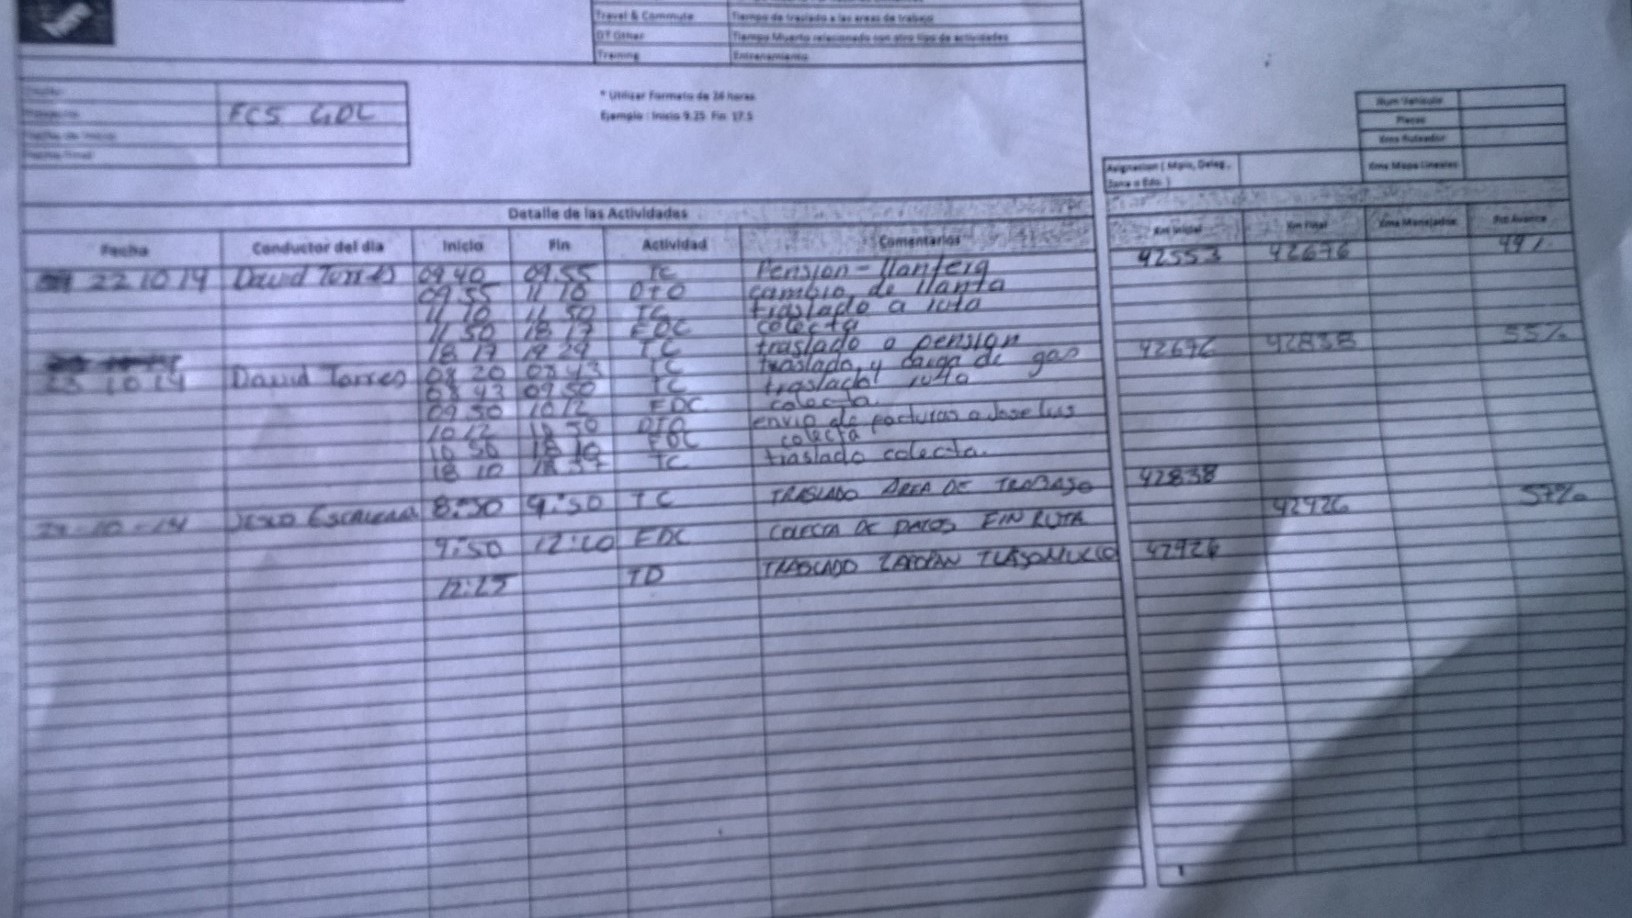 Travel & Commute Tiempo de traslado a las areas de trabajo
DT Other Tiempo Muerto relacionado con otro tipo de actividades
Training Entrenamiento
FCS GDL
* Utilizar Formato de 24 horas
Ejemplo : Inicio 9.25 Fin 17.5
Num Vehiculo
Placas
Kms Ruteador
Asignacion ( Mpio, Deleg., Zona o Edo. ) Kms Mapa Lineales
Detalle de las Actividades
Fecha Conductor del dia Inicio Fin Actividad Comentarios Km Inicial Km Final Kms Manejados Pct Avance
22 10 14 David Torres 09 40 09.55 TC Pension - llantera 42553 42676 49%
09 55 11 10 DTO cambio de llanta
11 10 11 50 TC traslado a ruta
11 50 18 17 FDC colecta
18 17 19 29 TC traslado a pension
23 10 14 David Torres 08 20 08 43 TC traslado y carga de gas 42676 42838 55%
08 43 09 50 TC traslado ruta
09 50 10 12 FDC colecta
10 12 DTO envio de facturas a Jose Luis
FDC colecta
18 10 TC traslado colecta.
8:30 9:50 TC TRASLADO AREA DE TRABAJO 42838 42926 57%
9:50 12:20 FDC COLECTA DE DATOS FIN RUTA
12:25 TD TRASLADO ZAPOPAN 42926